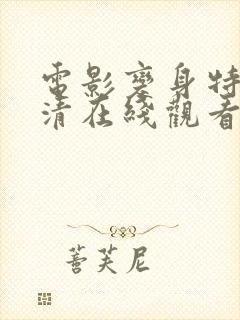 電影變身特
清在綫觀看
蓍芙尼